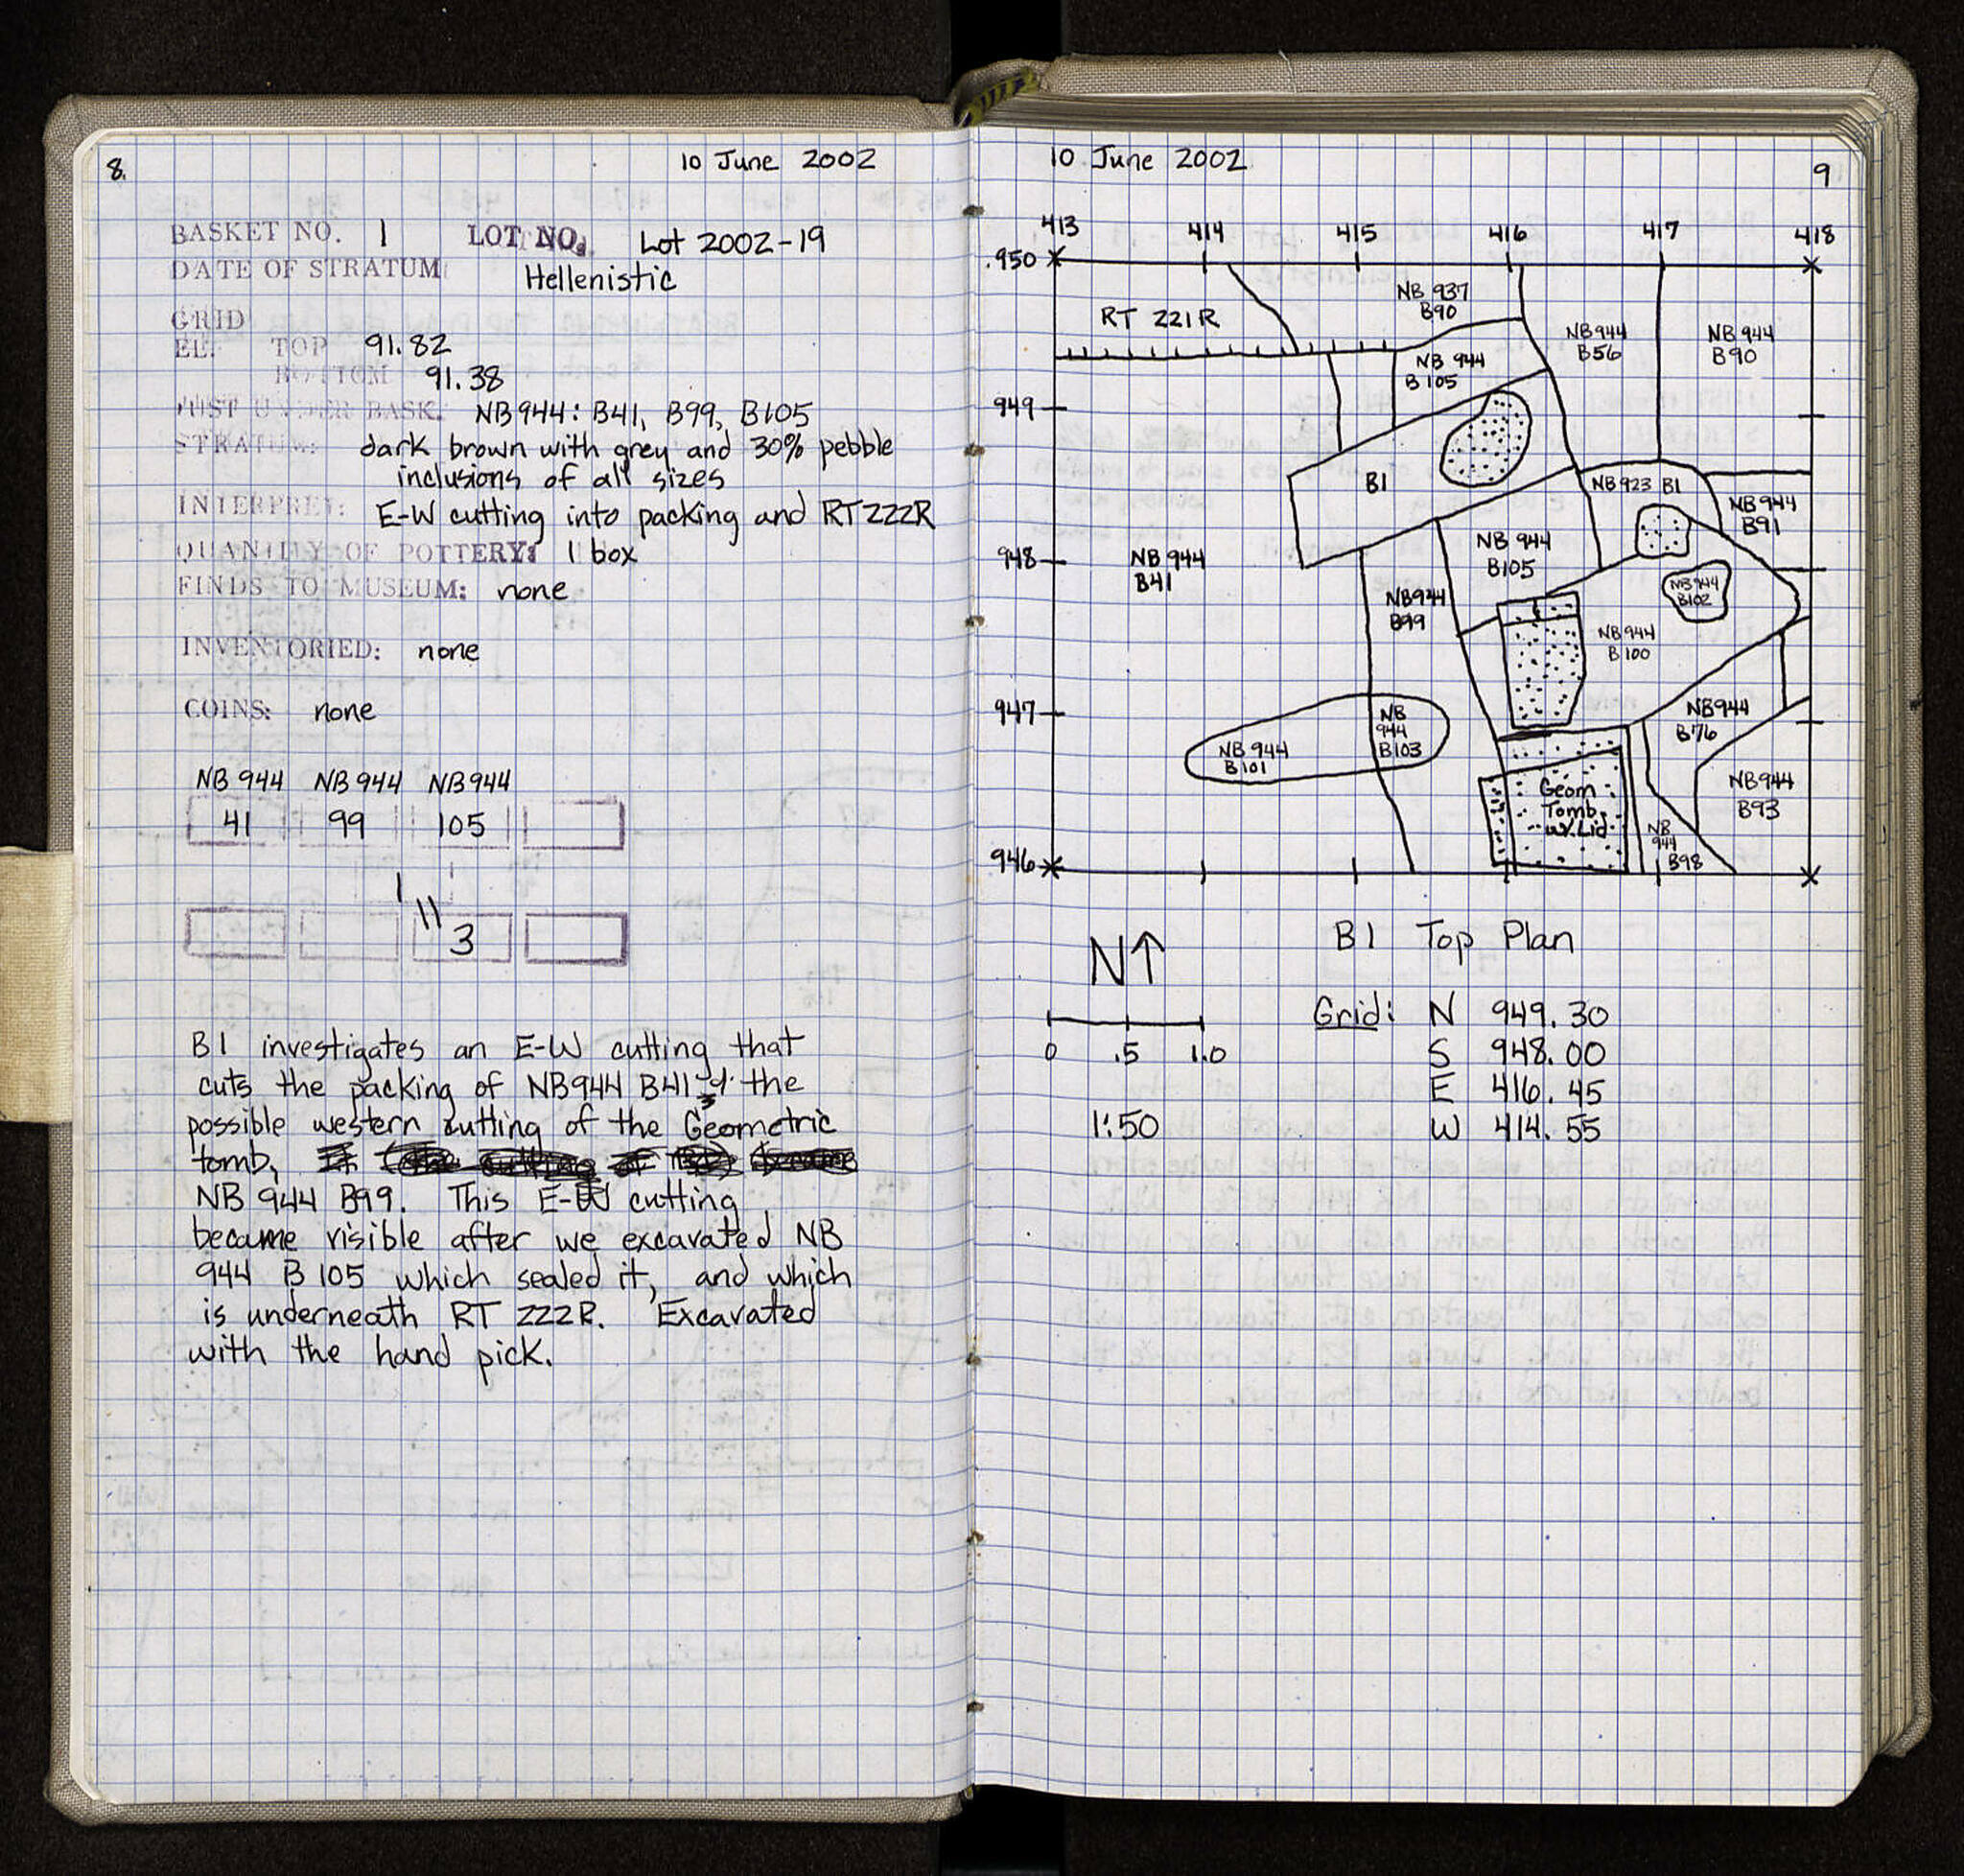 8.
10 June 2002
BASKET NO. 1 LOT NO. Lot 2002-19
DATE OF STRATUM: Hellenistic
GRID
EL: TOP 91.82
BOTTOM 91.38
JUST UNDER BASK. NB944: B41, B99, B105
STRATUM: dark brown with grey and 30% pebble
inclusions of all sizes
INTERPRET: E-W cutting into packing and RT222R
QUANTITY OF POTTERY: 1 box
FINDS TO MUSEUM: none
INVENTORIED: none
COINS: none
NB 944 NB 944 NB 944
41 99 105
1
11
3
B1 investigates an E-W cutting that
cuts the packing of NB944 B41 & the
possible western cutting of the Geometric
tomb,
NB 944 B99. This E-W cutting
became visible after we excavated NB
944 B 105 which sealed it, and which
is underneath RT 222R. Excavated
with the hand pick.
10 June 2002
9
413 414 415 416 417 418
950
949
948
947
946
RT 221R
NB 937
B90
NB 944
B56
NB 944
B90
NB 944
B105
B1
NB 923 B1
NB 944
B91
NB 944
B41
NB 944
B105
NB944
B99
NB 944
B102
NB 944
B 100
NB 944
B101
NB
944
B103
NB944
B76
NB944
B93
Geom
Tomb
w/Lid
NB
944
B98
N↑
B1 Top Plan
0 .5 1.0
1:50
Grid: N 949.30
S 948.00
E 416.45
W 414.55